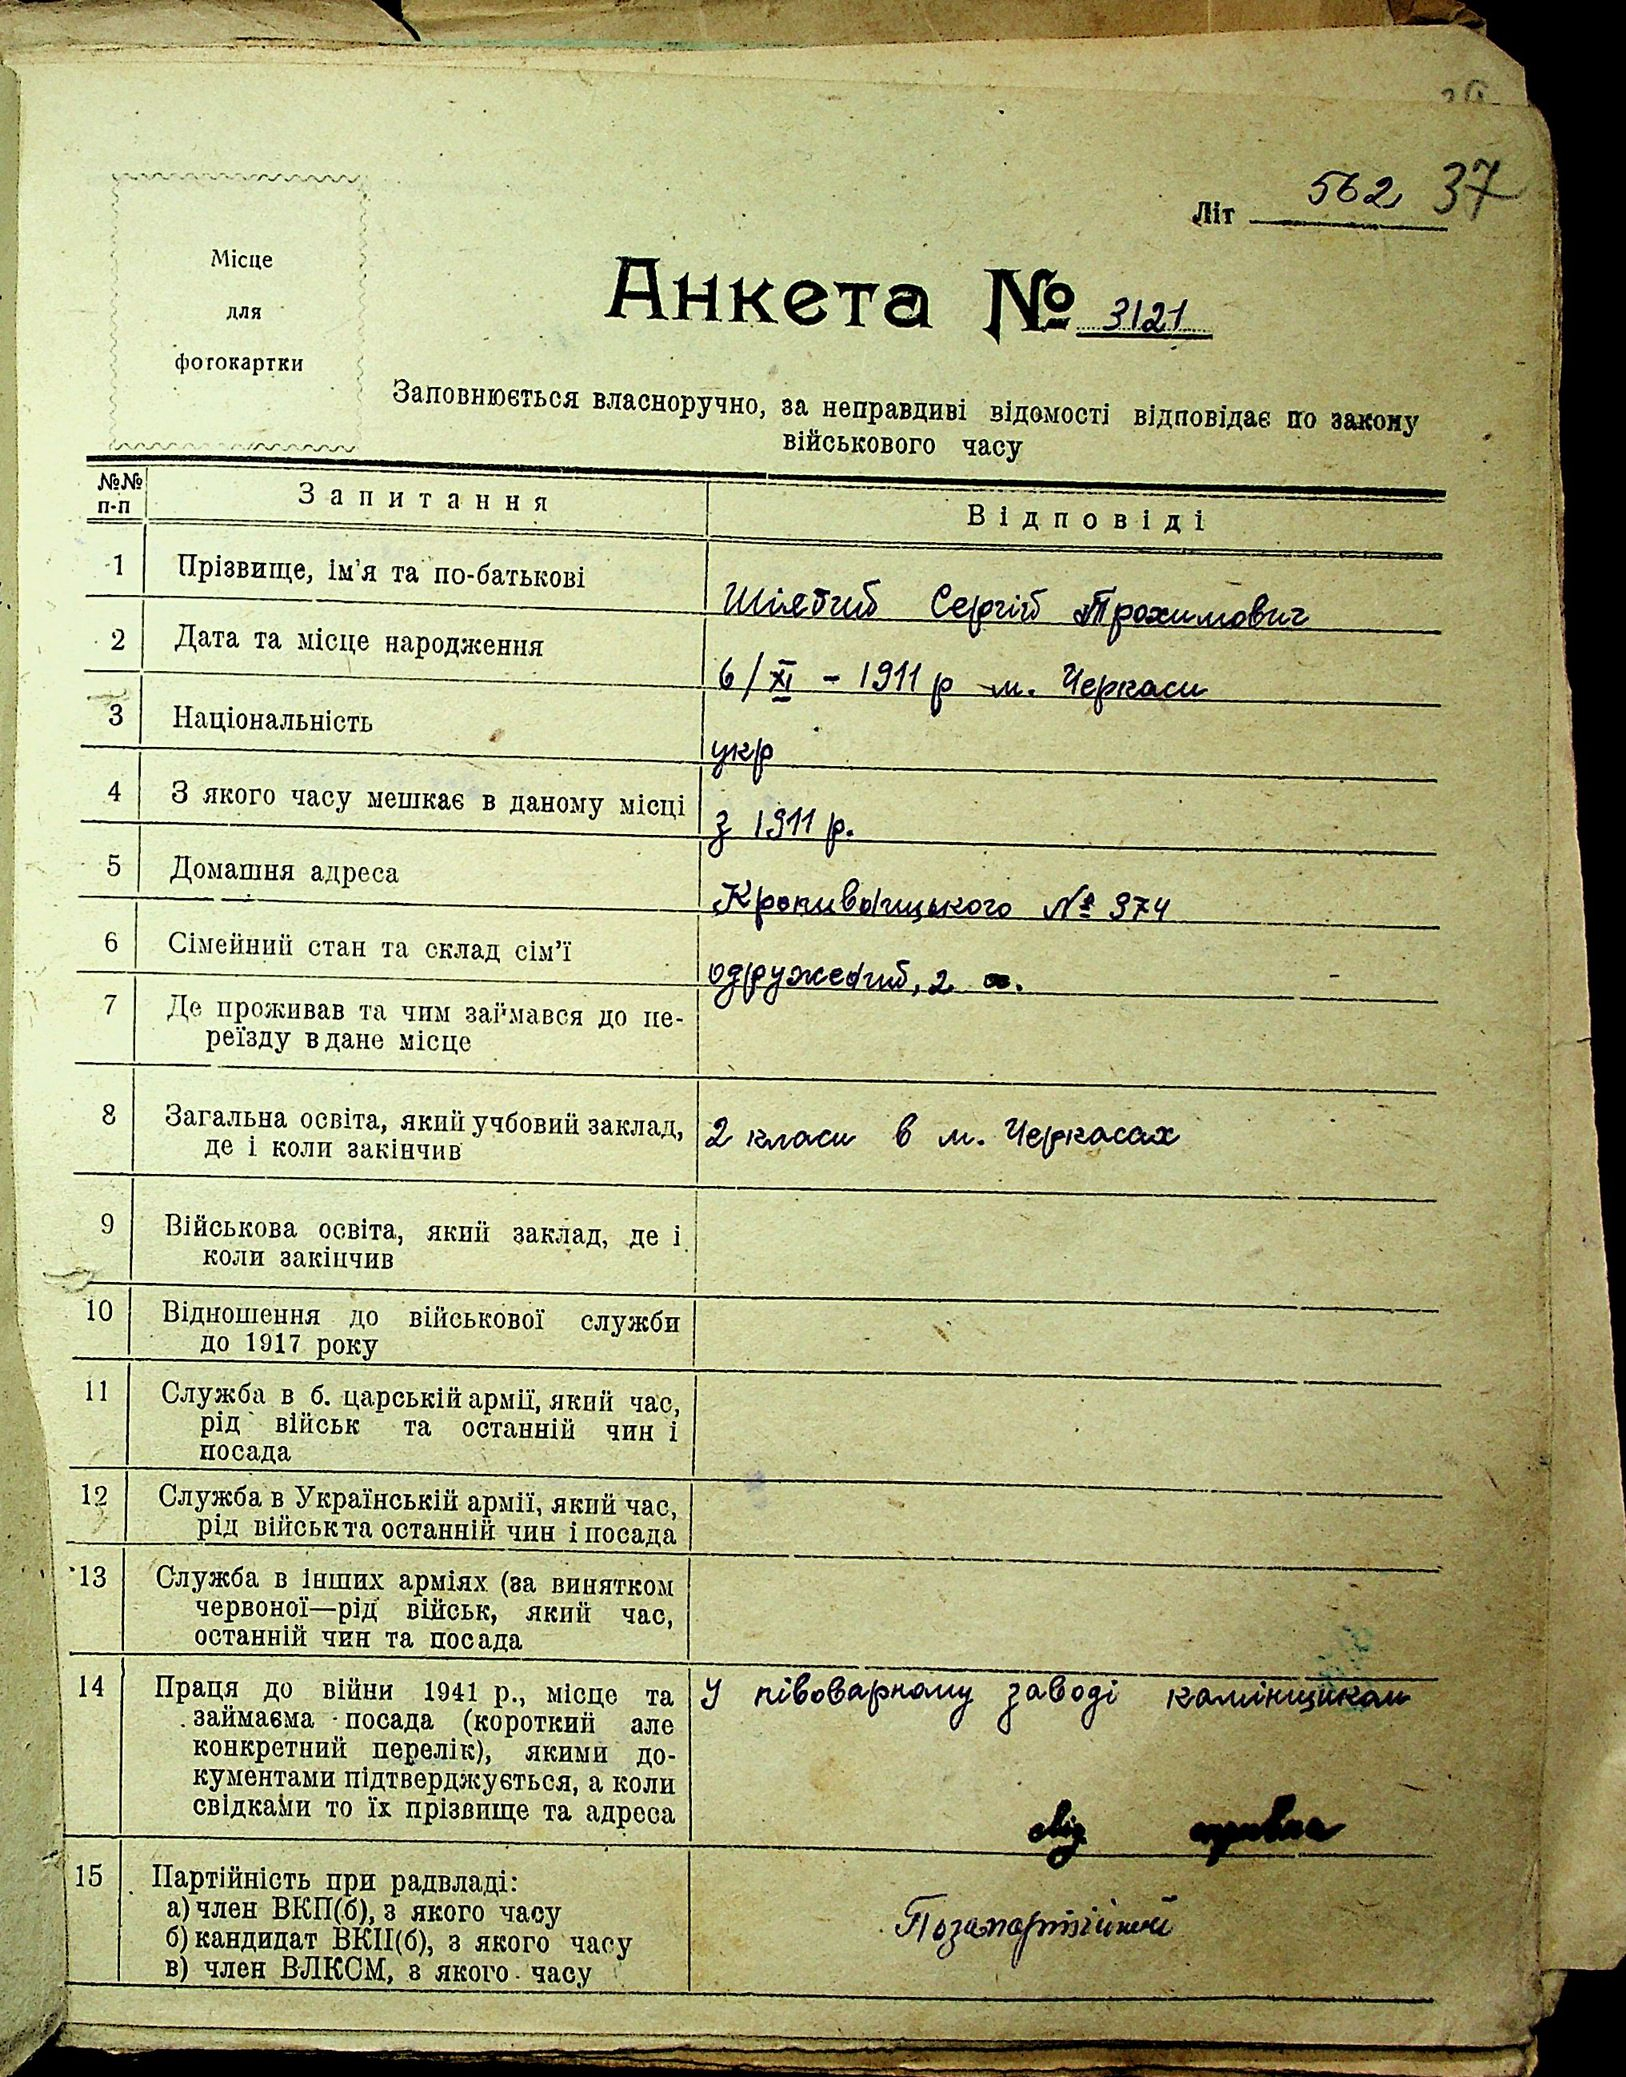 562 37
Літ
Місце
для
фотокартки
Анкета № 3121
Заповнюється власноручно, за неправдиві відомості відповідає по закону
військового часу
№№ п-п Запитання Відповіді
1 Прізвище, ім'я та по-батькові
Сергій Трохимович
2 Дата та місце народження
6/XI - 1911 р м. Черкаси
3 Національність
укр
4 З якого часу мешкає в даному місці
з 1911 р.
5 Домашня адреса
Кропивницького № 374
6 Сімейний стан та склад сім'ї
одружений, 2
7 Де проживав та чим займався до пе-
реїзду в дане місце
8 Загальна освіта, який учбовий заклад, 2 класи в м. Черкасах
де і коли закінчив
9 Військова освіта, який заклад, де і
коли закінчив
10 Відношення до військової служби
до 1917 року
11 Служба в б. царській армії, який час,
рід військ та останній чин і
посада
12 Служба в Українській армії, який час,
рід військ та останній чин і посада
13 Служба в інших арміях (за винятком
червоної—рід військ, який час,
останній чин та посада
14 Праця до війни 1941 р., місце та У півоварному заводі камінщиком
займаєма посада (короткий але
конкретний перелік), якими до-
кументами підтверджується, а коли
свідками то їх прізвище та адреса
15 Партійність при радвладі:
а) член ВКП(б), з якого часу Позапартійний
б) кандидат ВКП(б), з якого часу
в) член ВЛКСМ, з якого часу